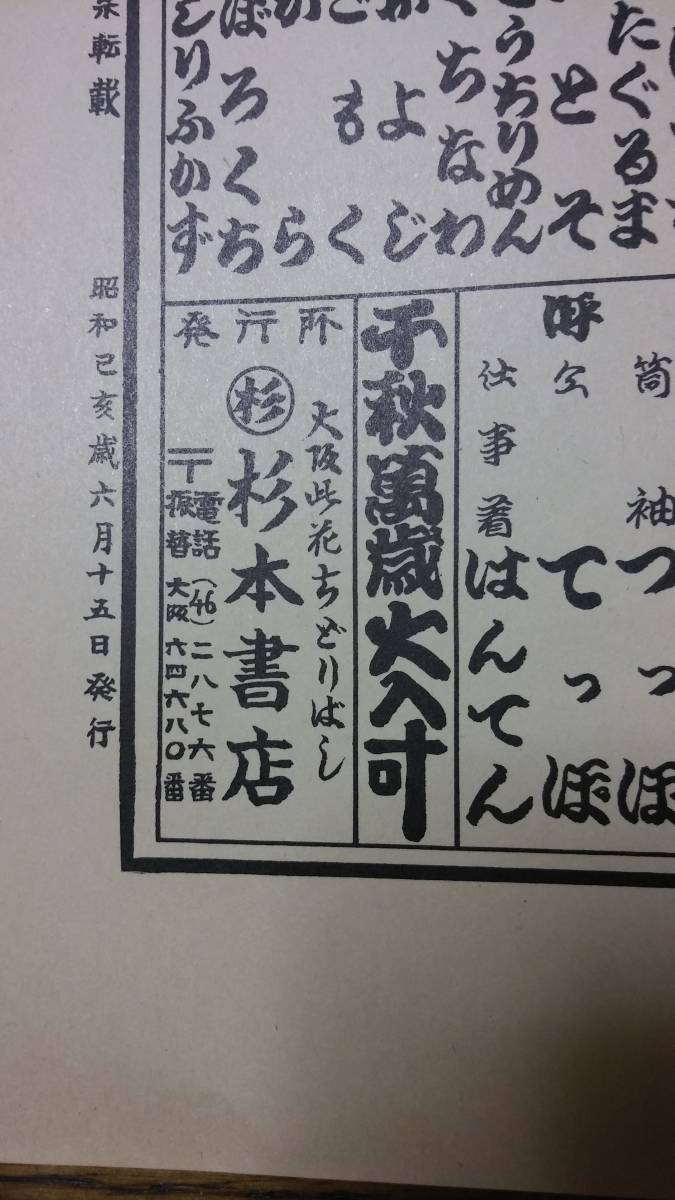 たぐるま
とそ
うちりめん
ちなわ
よじ
もく
ら
ぼろくち
しりふかず
筒袖 つっぽ
てっぽ
仕事着 はんてん
千秋萬歳大入叶
発行所
大阪此花ちどりばし
杉 杉本書店
電話(46)二八七六番
〒振替大阪六四六八〇番
転載 昭和己亥歳六月十五日発行